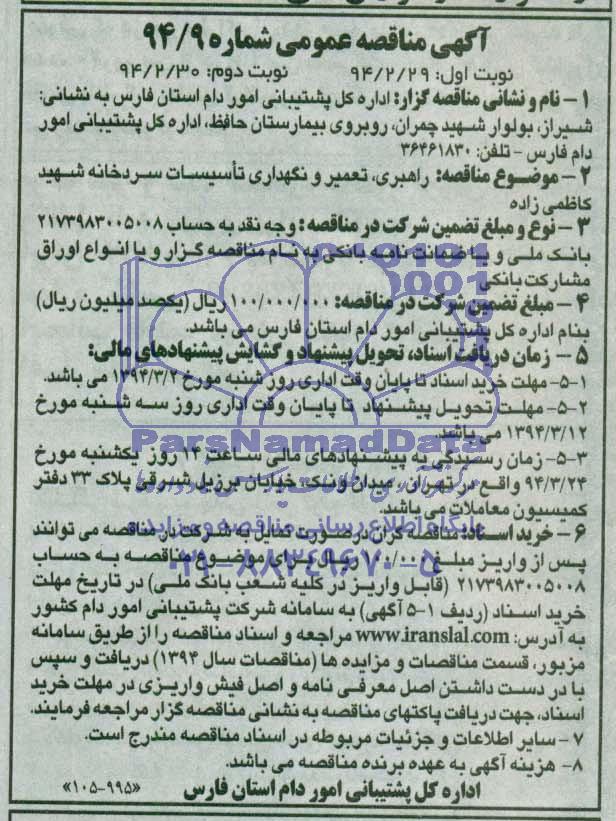 آگهی مناقصه عمومی شماره ۹۴/۹
نوبت اول: ۹۴/۲/۲۹ نوبت دوم: ۹۴/۲/۳۰
۱– نام و نشانی مناقصه گزار: اداره کل پشتیبانی امور دام استان فارس به نشانی:
شیراز، بولوار شهید چمران، روبروی بیمارستان حافظ، اداره کل پشتیبانی امور
دام فارس – تلفن: ۳۶۴۶۱۸۳۰
۲– موضوع مناقصه: راهبری، تعمیر و نگهداری تأسیسات سردخانه شهید
کاظمی زاده
۳– نوع و مبلغ تضمین شرکت در مناقصه: وجه نقد به حساب ۲۱۷۳۹۸۳۰۰۵۰۰۸
بانک ملی و یا ضمانت نامه بانکی به نام مناقصه گزار و یا انواع اوراق
مشارکت بانکی
۴– مبلغ تضمین شرکت در مناقصه: ۱۰۰/۰۰۰/۰۰۰ ریال (یکصد میلیون ریال)
بنام اداره کل پشتیبانی امور دام استان فارس می باشد.
۵– زمان دریافت اسناد، تحویل پیشنهاد و گشایش پیشنهادهای مالی:
۵-۱– مهلت خرید اسناد تا پایان وقت اداری روز شنبه مورخ ۱۳۹۴/۳/۲ می باشد.
۵-۲– مهلت تحویل پیشنهاد تا پایان وقت اداری روز سه شنبه مورخ
۱۳۹۴/۳/۱۲ می باشد.
ParsNamadData
۵-۳– زمان رسیدگی به پیشنهادهای مالی ساعت ۱۴ روز یکشنبه مورخ
۹۴/۳/۲۴ واقع در تهران، میدان ونک، خیابان برزیل شرقی پلاک ۳۳ دفتر
کمیسیون معاملات می باشد.
پایگاه اطلاع رسانی مناقصه و مزایده
۶– خرید اسناد: مناقصه گران درصورت تمایل به شرکت در مناقصه می توانند
۰۲۱-۸۸۳۴۹۶۷۰-۵
پس از واریز مبلغ ریال برای موضوع مناقصه به حساب
۲۱۷۳۹۸۳۰۰۵۰۰۸ (قابل واریز در کلیه شعب بانک ملی) در تاریخ مهلت
خرید اسناد (ردیف ۱-۵ آگهی) به سامانه شرکت پشتیبانی امور دام کشور
به آدرس: www.iranslal.com مراجعه و اسناد مناقصه را از طریق سامانه
مزبور، قسمت مناقصات و مزایده ها (مناقصات سال ۱۳۹۴) دریافت و سپس
با در دست داشتن اصل معرفی نامه و اصل فیش واریزی در مهلت خرید
اسناد، جهت دریافت پاکتهای مناقصه به نشانی مناقصه گزار مراجعه فرمایند.
۷– سایر اطلاعات و جزئیات مربوطه در اسناد مناقصه مندرج است.
۸– هزینه آگهی به عهده برنده مناقصه می باشد.
اداره کل پشتیبانی امور دام استان فارس «۹۹۵-۱۰۵»